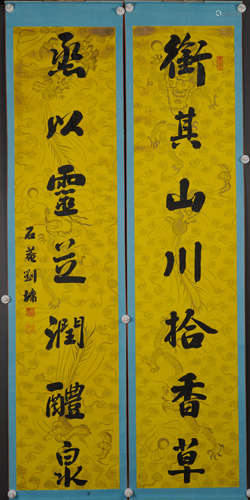 衡其山川拾香草
丞以靈芝潤醴泉
石菴劉墉